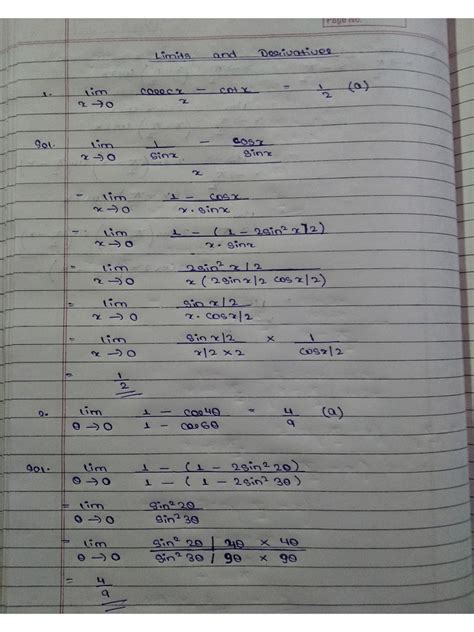 Page No.
Limits and Derivatives
1. lim x→0 cosecx - cotx / x = 1/2 (a)
Sol. lim x→0 1/sinx - cosx/sinx / x
= lim x→0 1 - cosx / x·sinx
= lim x→0 1 - (1 - 2sin² x/2) / x·sinx
= lim x→0 2sin² x/2 / x(2sinx/2 cosx/2)
= lim x→0 sin x/2 / x·cosx/2
= lim x→0 sinx/2 / x/2 × 2 × 1 / cosx/2
= 1/2
2. lim θ→0 1 - cos4θ / 1 - cos6θ = 4/9 (a)
Sol. lim θ→0 1 - (1 - 2sin² 2θ) / 1 - (1 - 2sin² 3θ)
= lim θ→0 sin² 2θ / sin² 3θ
= lim θ→0 sin² 2θ / 4θ × 4θ / sin² 3θ / 9θ × 9θ
= 4/9